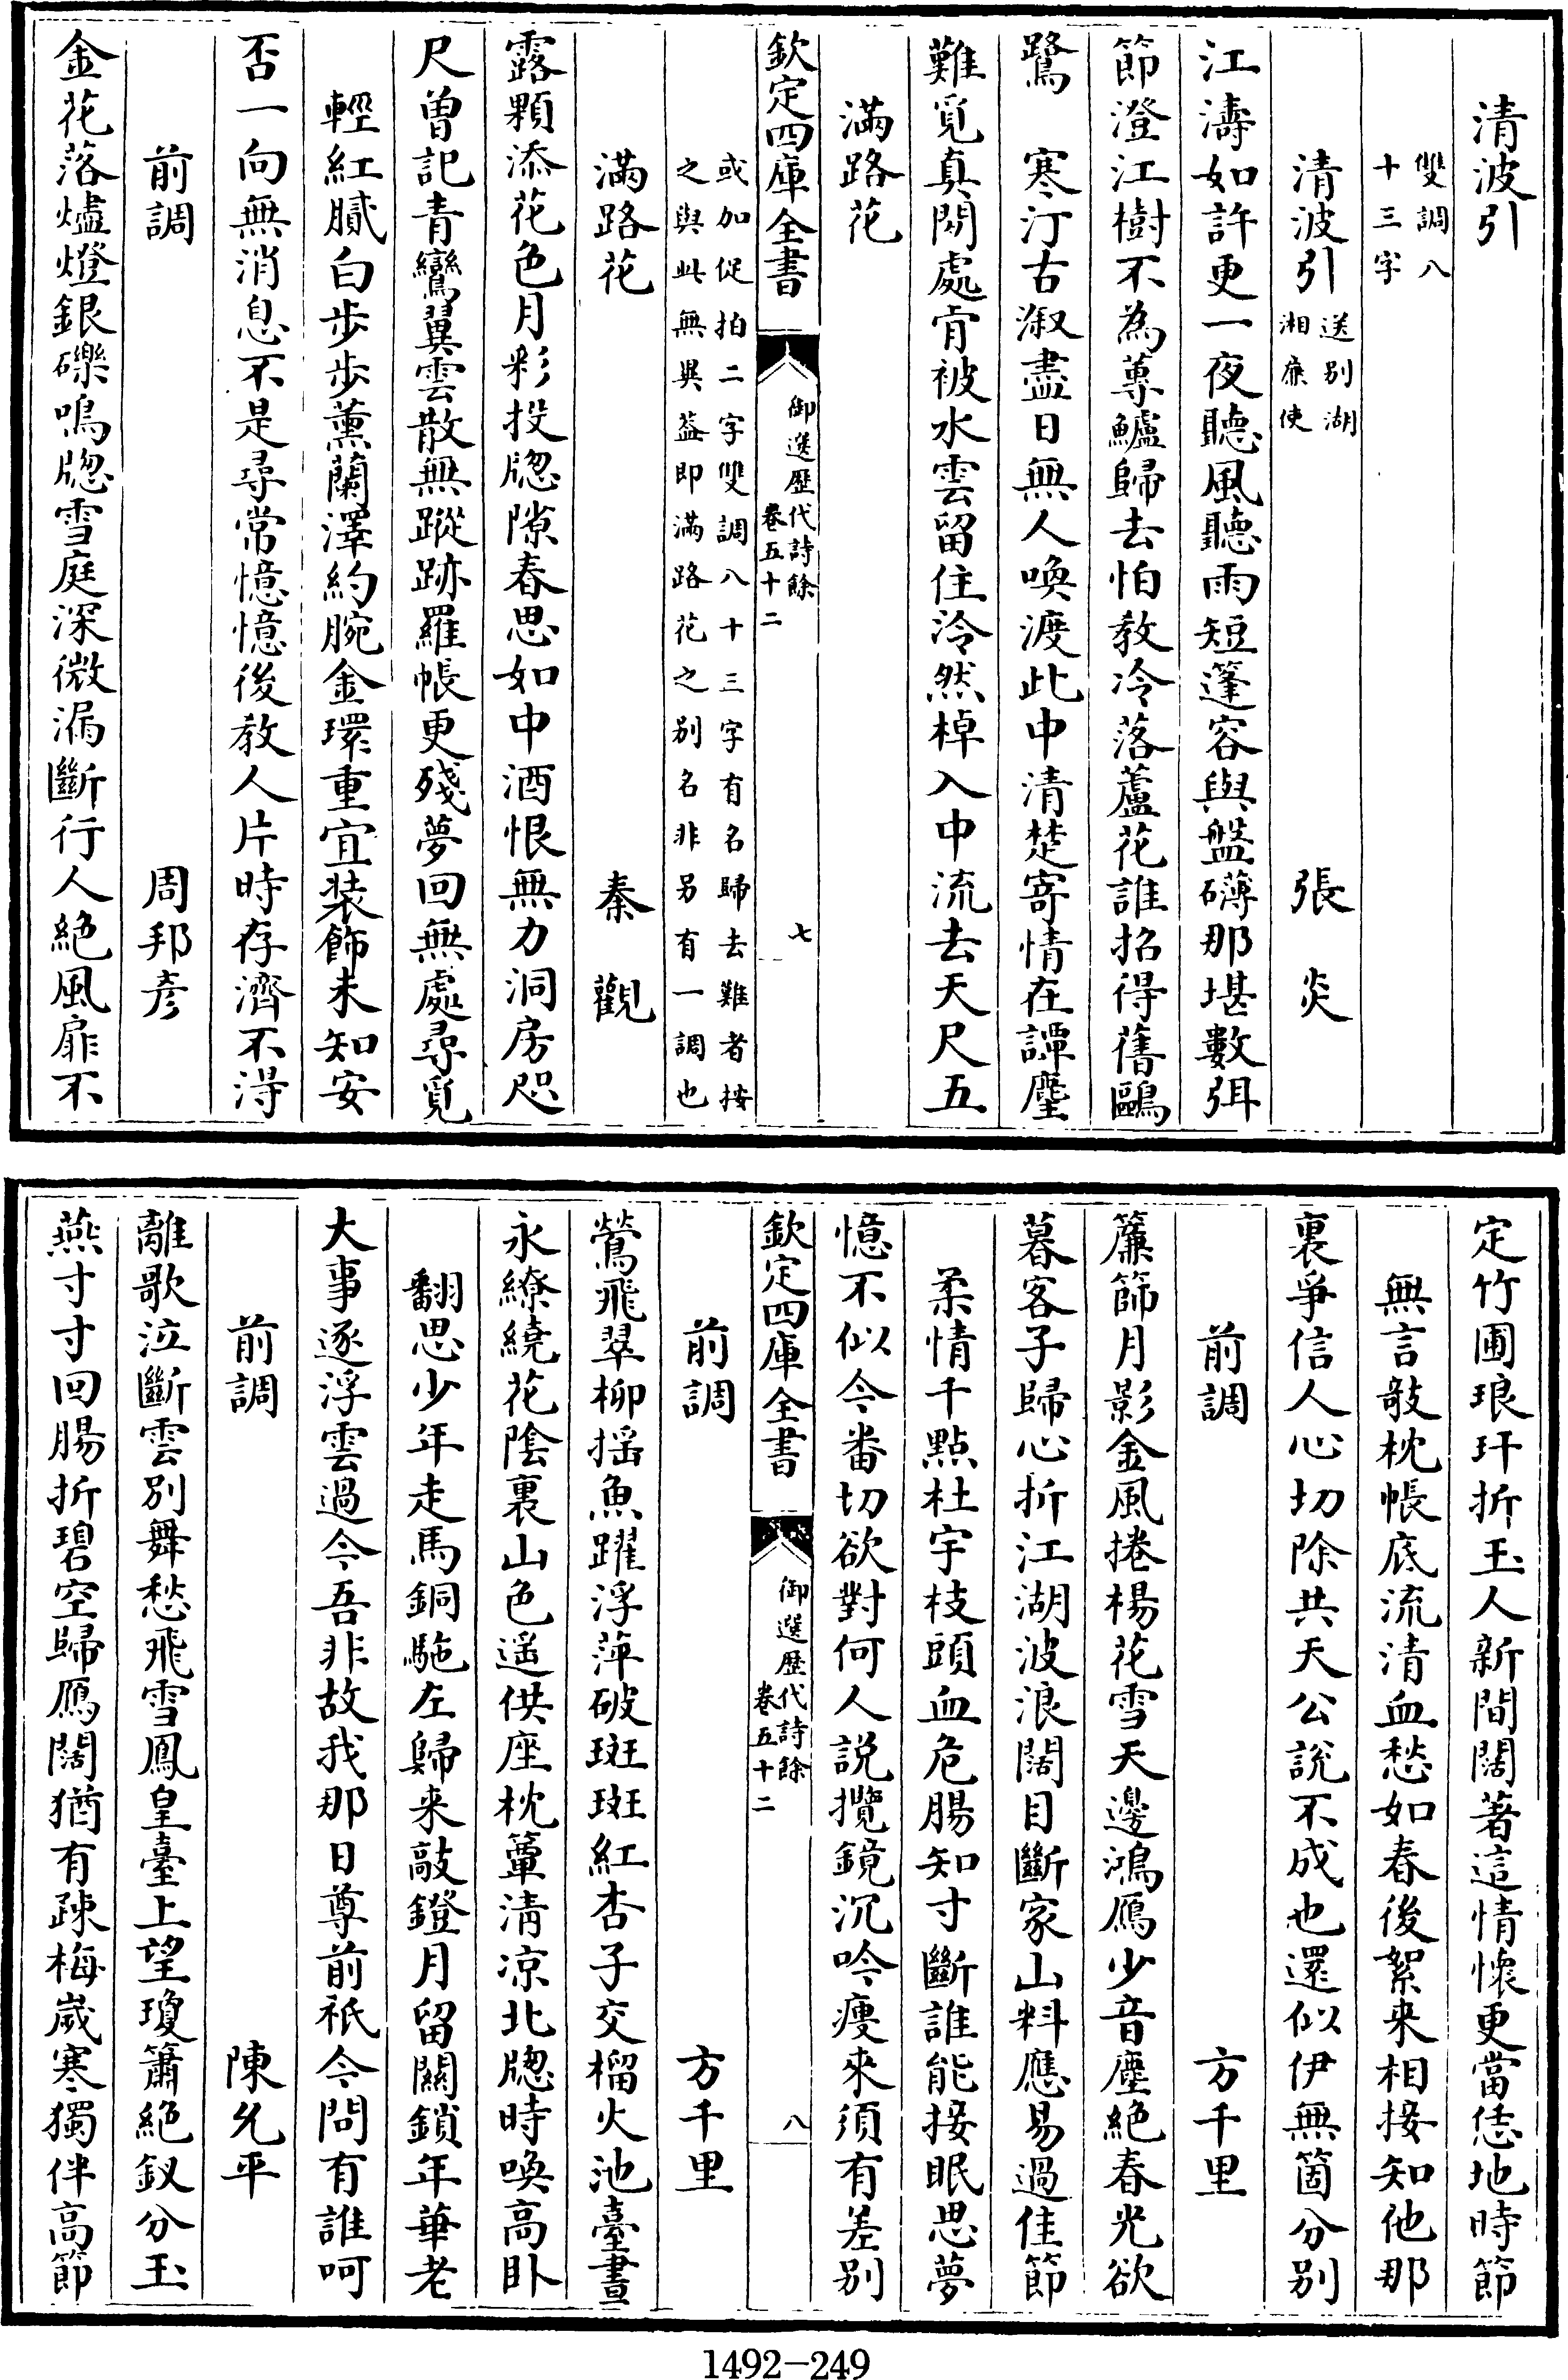 清波引
雙調八
十三字
清波引 送別湖
湘廉使 張炎
江濤如許更一夜聽風聽雨短篷容與盤礴那堪數弭
節澄江樹不為蓴鱸歸去怕教冷落蘆花誰招得舊鷗
鷺 寒汀古溆盡日無人喚渡此中清楚寄情在譚麈
難覓真閒處肯被水雲留住泠然棹入中流去天尺五
滿路花
欽定四庫全書 御選歷代詩餘
卷五十二 七
或加促拍二字雙調八十三字有名歸去難者按
之與此無異葢即滿路花之別名非另有一調也
滿路花 秦觀
露顆添花色月彩投牎隙春思如中酒恨無力洞房咫
尺曾記青鸞翼雲散無蹤跡羅帳更殘夢回無處尋覓
輕紅膩白步步薰蘭澤約腕金環重宜装飾未知安
否一向無消息不是尋常憶憶後教人片時存濟不得
前調 周邦彦
金花落燼燈銀礫鳴牎雪庭深微漏斷行人絶風扉不
定竹圃琅玕折玉人新間闊著這情懷更當恁地時節
無言敧枕帳底流清血愁如春後絮来相接知他那
裏爭信人心切除共天公説不成也還似伊無箇分別
前調 方千里
簾篩月影金風捲楊花雪天邊鴻鴈少音塵絶春光欲
暮客子歸心折江湖波浪闊目斷家山料應易過佳節
柔情千點杜宇枝頭血危腸知寸斷誰能接眠思夢
憶不似今番切欲對何人説攬鏡沉吟瘦來須有差別
欽定四庫全書 御選歷代詩餘
卷五十二 八
前調 方千里
鶯飛翠柳揺魚躍浮萍破斑斑紅杏子交榴火池臺晝
永繚繞花陰裏山色遥供座枕簟清凉北牎時喚高卧
翻思少年走馬銅駞左歸来敲鐙月留關鎖年華老
大事逐浮雲過今吾非故我那日尊前衹今問有誰呵
前調 陳允平
離歌泣斷雲別舞愁飛雪鳳皇臺上望瓊簫絶釵分玉
燕寸寸回腸折碧空歸鴈闊猶有疎梅歲寒獨伴高節
1492-249